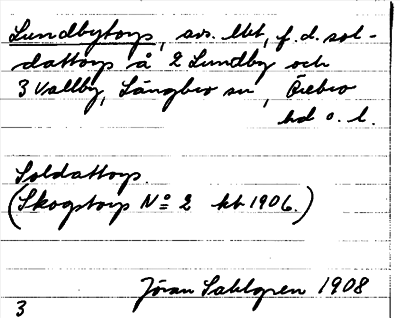 Lundbytorp, avs. lht, f. d. sol-
dattorp å 2 Lundby och
3 Vallby, Längbro sn, Örebro
hd o. l.
Soldattorp.
(Skogstorp No 2 kb 1906.)
Jöran Sahlgren 1908
3